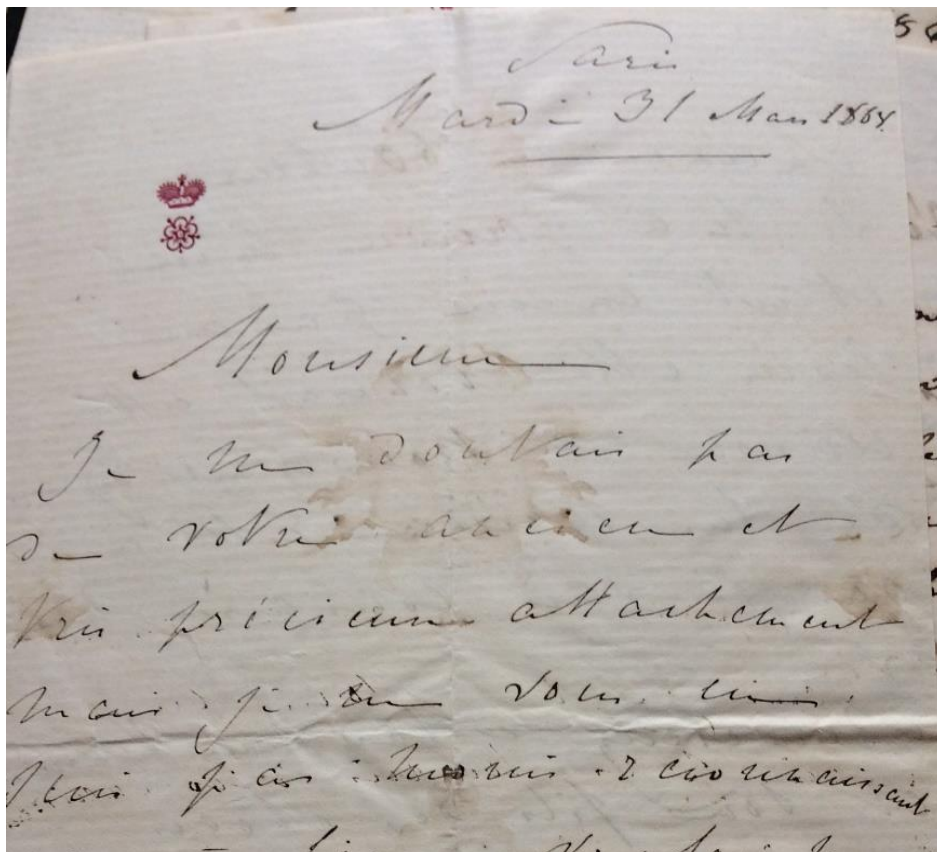 Paris
Mardi 31 Mars 1868.
Monsieur
Je ne doutais pas
de votre ancien et
très précieux attachement
mais je ne vous en
suis pas moins reconnaissant